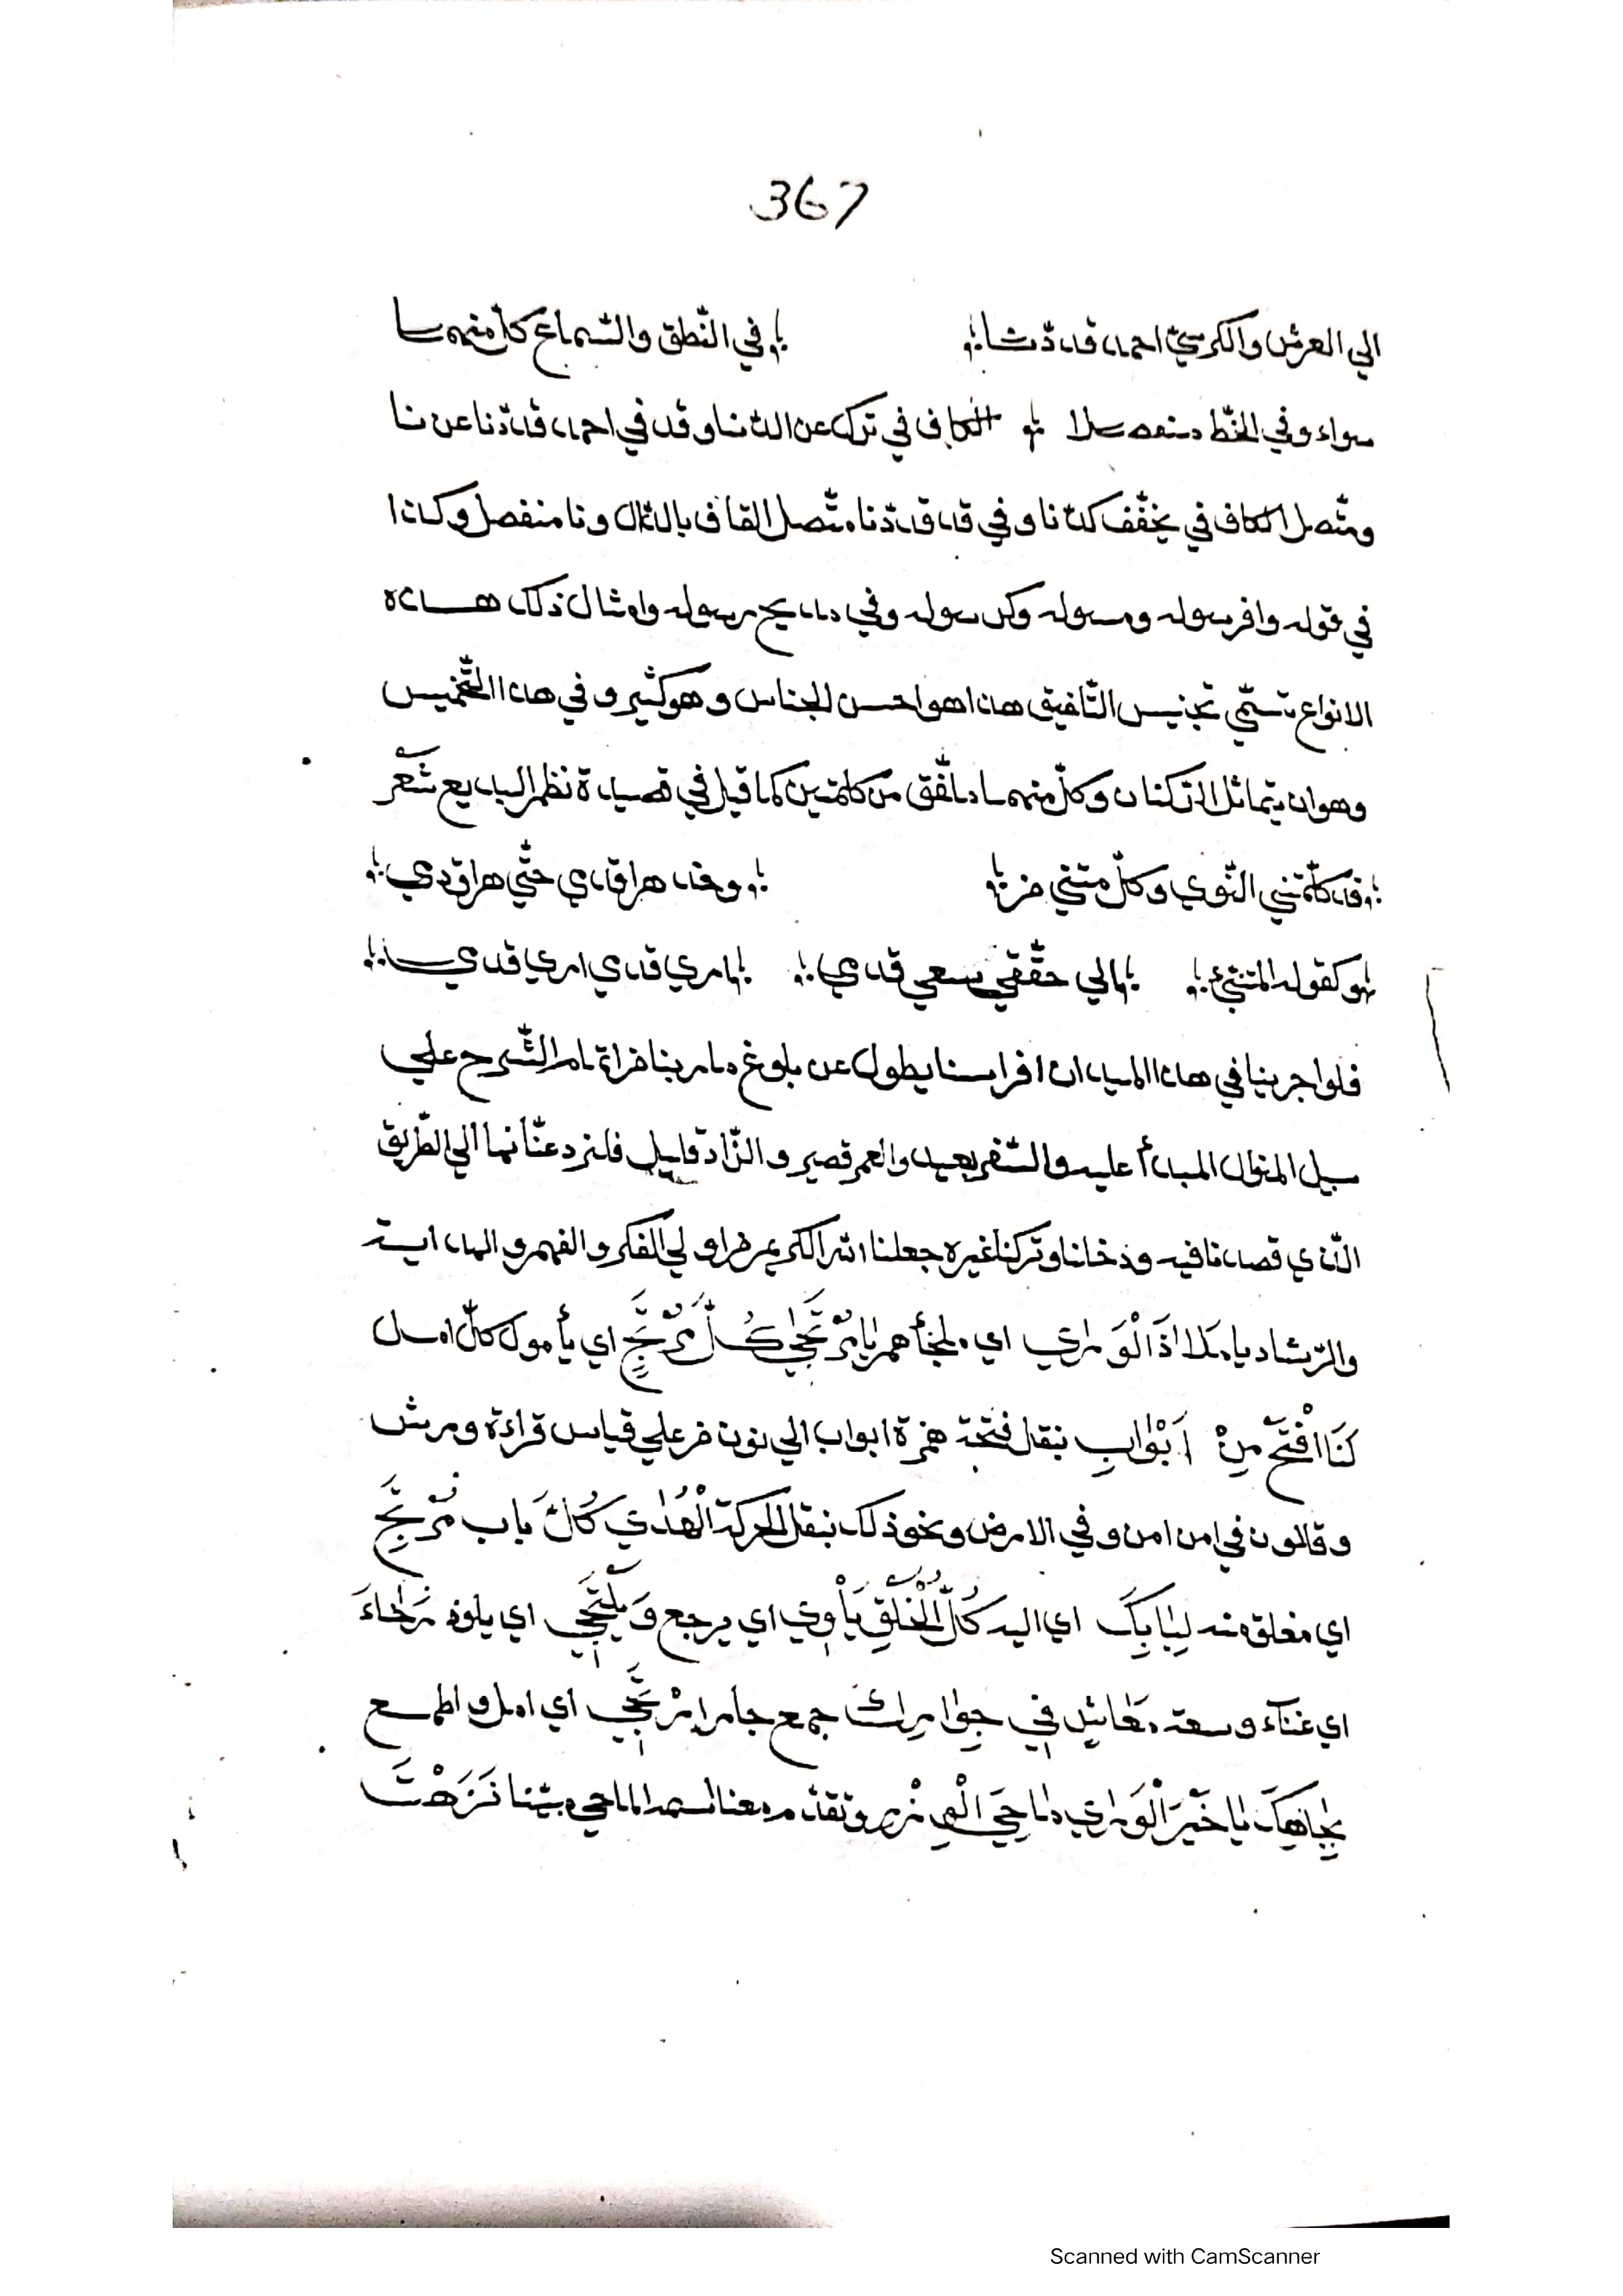 367
الي العرش والكرسيّ احمد قد دّنا ؛ في النّطق والسّماع كلّ منهما
سواء وفي الخطّ منفصلا الكاف في ترك عن الدّنا وقد في احمد قد دّنا عن نا
ومتّصل الكاف في يخفّف كدّنا وفي قد قد دّنا متّصل القاف بالدّال ونا منفصل وكذا
في قوله وافر سوله وسوله وكر سوله وفي مديح رسوله وامثال ذلك هذه
الانواع تسمّي تجنيس التّلفيق هذا هو احسن الجناس وهو كثير وفي هذا التّخميس
وهو ان يتماثل الرّكنان وكلّ منهما ملفّق من كلمتين كما قيل في قصيدة نظم البديع شعر
؛ قد كلّمتني النّوي وكلّ متني من ؛ ؛ وخد هراقدي حتّي هراق دمي ؛
وكقوله المتنبّئ ؛ ؛ الي حقّقي سعي قدمي ؛ ؛ اري قدمي اري قدمي
فلو اجرينا في هذا الميدان افراسنا يطول عن بلوغ مارينا من اتمام الشّرح علي
سبيل المنوال المبدأ عليه والسّفر بعيد والعمر قصير والزّاد قليل فلنرد عنّاننا الي الطّريق
الّذي قصدنا فيه ودخلنا وتركنا غيره جعلنا الله الكريم من اولي الفكر والفهم والهداية
والرّشاد يا مَلَاذَ الْوَرٰي اي ملجأهم يٰا مُرْتَجٰي كُلَّ مُرْتَجٍ اي يأمول كلّ امل
لَنَا افْتَحْ مِنْ اَبْوٰابِ بنقل فتحة همزة ابواب الي نون من علي قياس قراءة ورش
وقالون في من امن وفي الارض ونحو ذلك بنقل الحركة الْهُدٰي كُلَّ بٰابٍ مُرْتَجٍ
اي مغلق منه لِبٰابِكَ اي اليه كُلُّ الْخَلْقِ يَأْوِي اي يرجع وَيَلْتَجِي اي يلوذ رَخٰاءَ
اي غناء وسعة مَعٰايِشٍ فِي جِوٰارِكَ جمع جار اَرْتَجِي اي امل واطمع
بِجٰاهِكَ يٰا خَيْرَ الْوَرٰي مٰاحِيَ الْوِزْرِ وتقدّم معنا اسمه الماحي مبيّنا نَزَهْتَ
Scanned with CamScanner